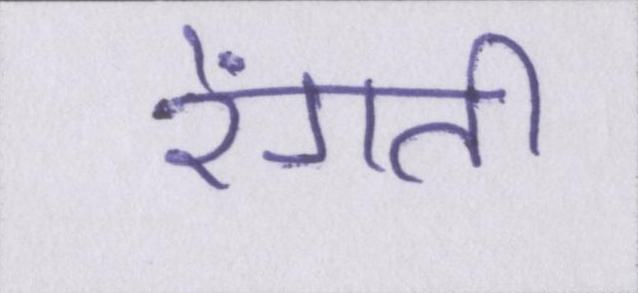 रेंगती